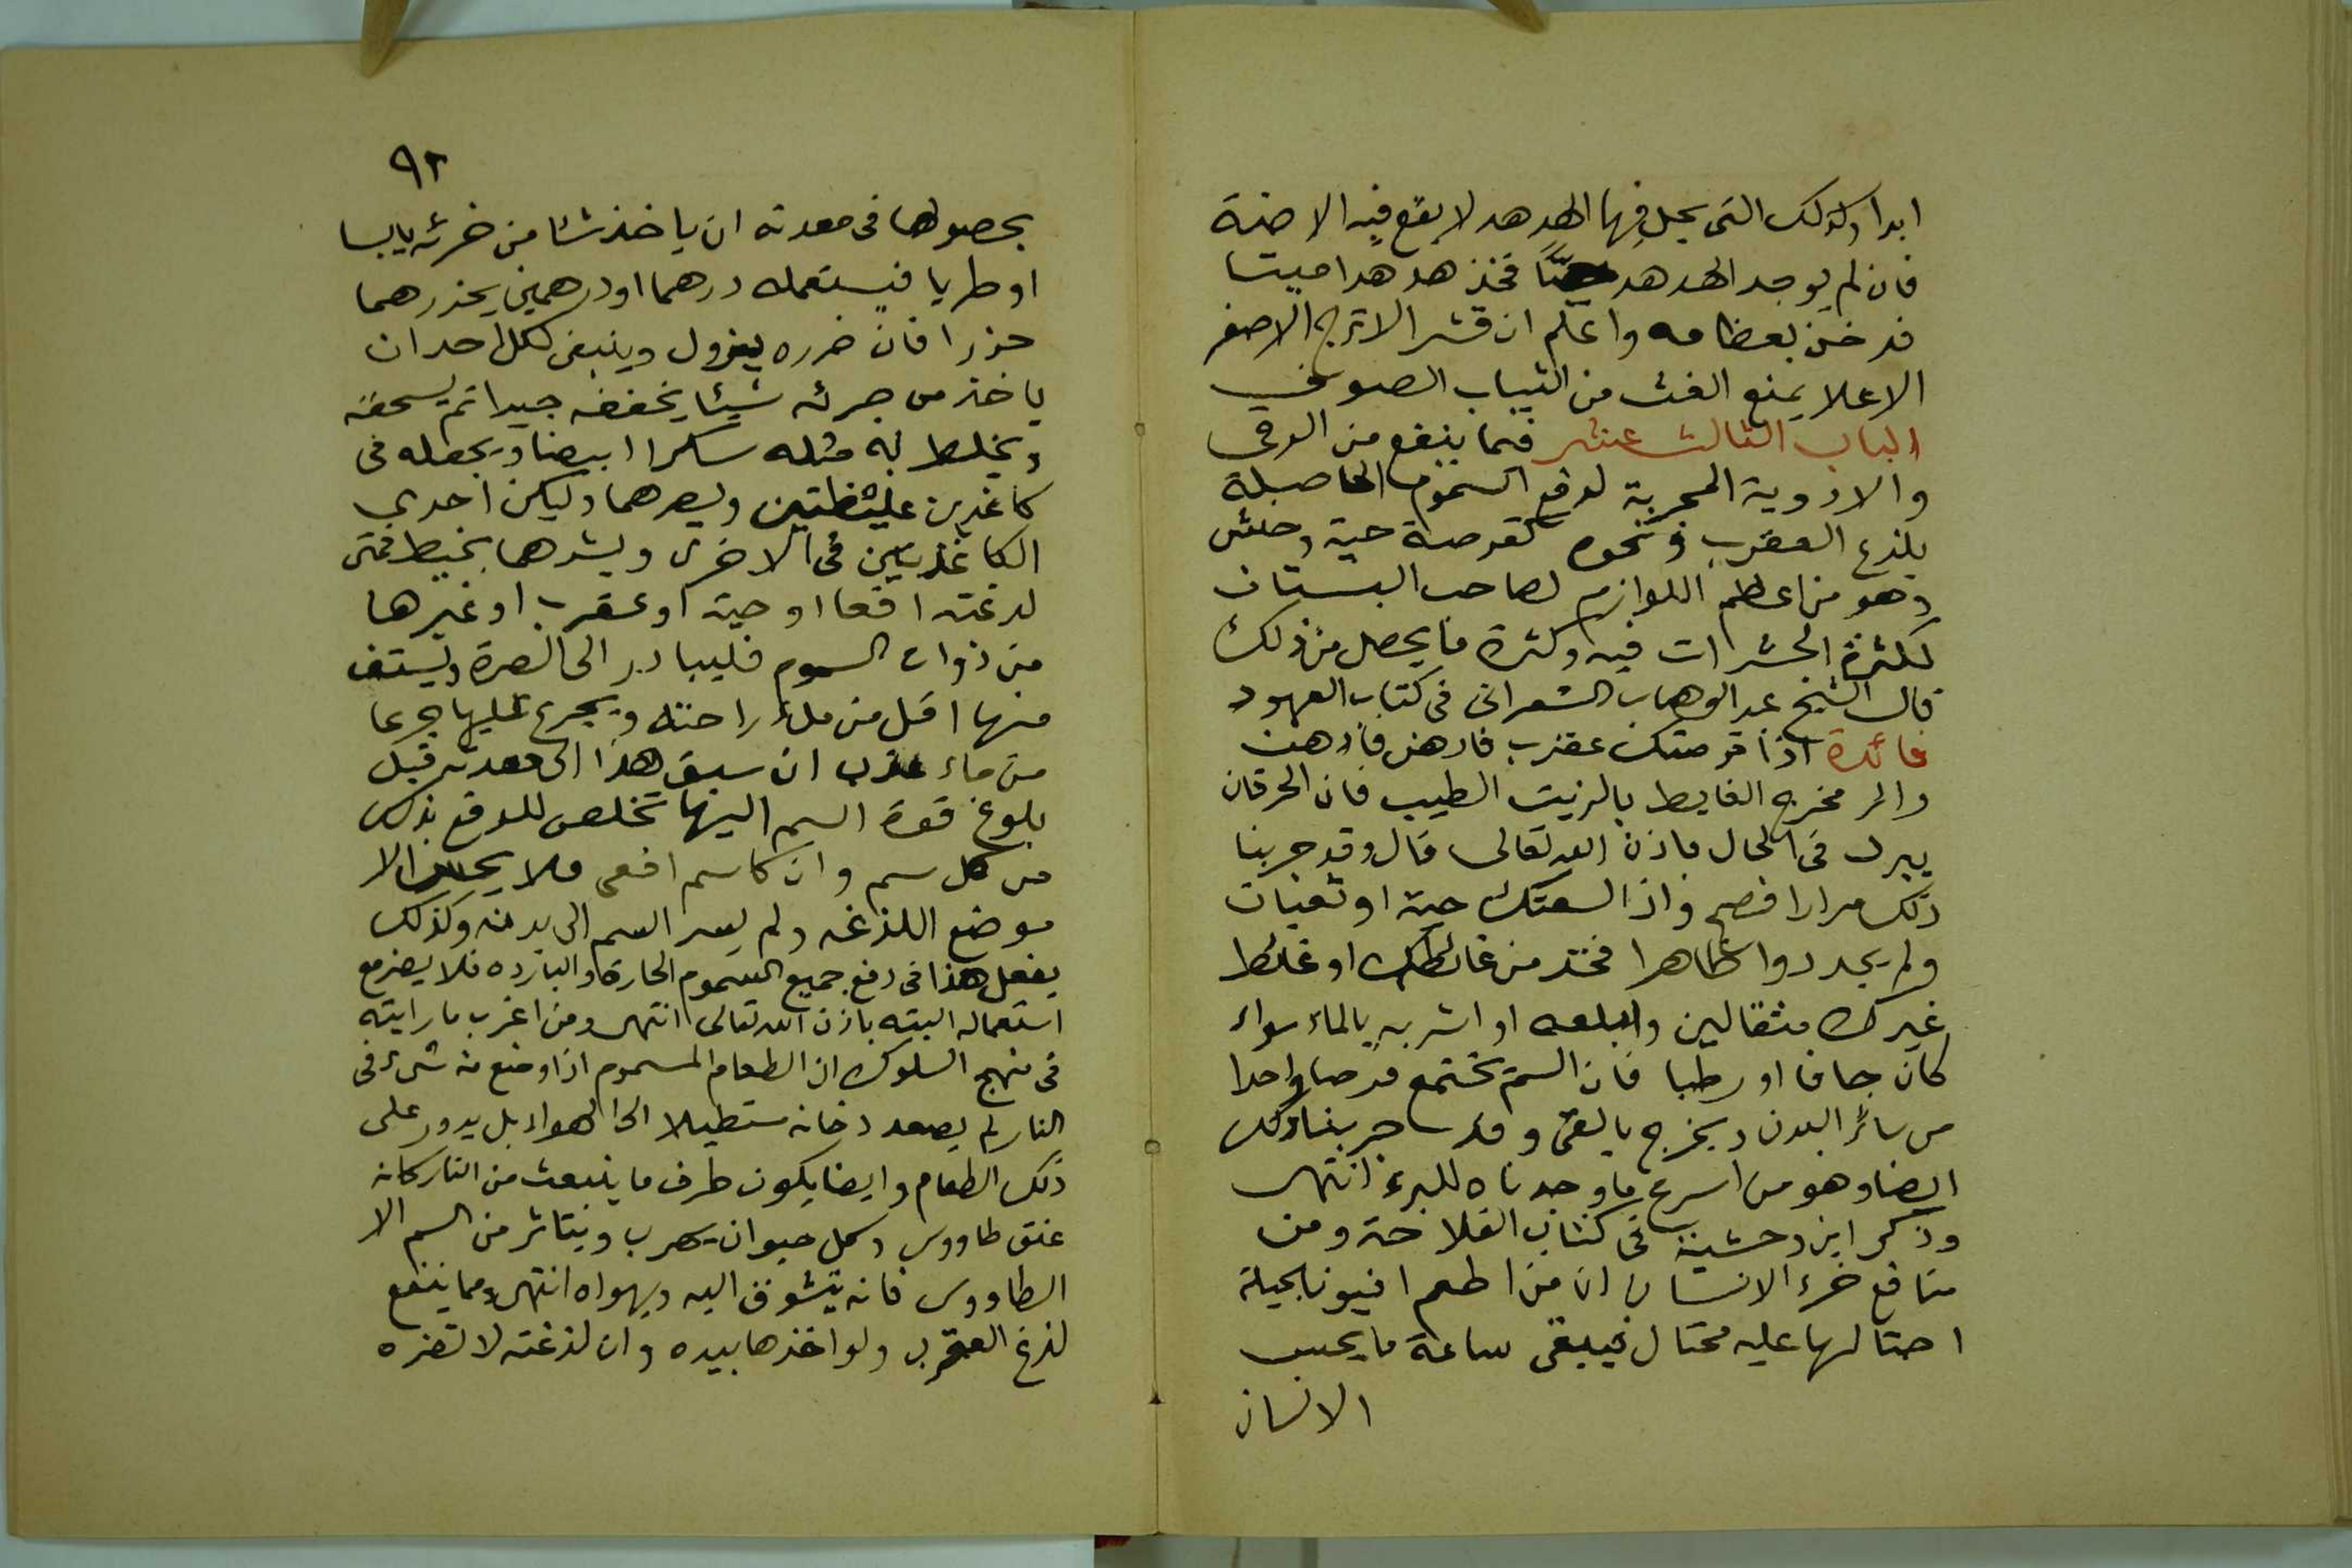 ابدا وكذلك التى يجلى فيها الهدهد لا يقع فيه الاضية
فان لم يوجد الهدهد حيّا فخذ هدهدا ميتا
فدخن بعظامه واعلم ان قشر الاترج الاصفر
الاعلا يمنع العث من الثياب الصوف
الباب الثالث عشر فيما ينفع من الرقى
والادوية المجربة لدفع السموم الحاصلة
بلذع العقرب ونحوه كقرصة حية وحنش
وهو من اعظم اللوازم لصاحب البستان
لكثرة الحشرات فيه وكثرة ما يحصل من ذلك
قال الشيخ عبد الوهاب الشعرانى فى كتاب العهود
فائدة اذا قرصتك عقرب فادهن فادهن
والر مخرج الغايط بالزيت الطيب فان الحرقان
يبرد فى الحال باذن الله تعالى قال وقد جربنا
ذلك مرارا فصح واذا لسعتك حية او ثعبان
ولم يجد دوا ظاهرا فخذ من غائطك او غائط
غيرك مثقالين وابلعه او اشربه بالماء سواء
كان جافا او رطبا فان السم تجتمع قرصا واحدا
من سائر البدن ويخرج بالقى وقد جربنا ذلك
ايضا وهو من اسرع ما وجدناه للبرء انتهى
وذكر ابن وحشية فى كتاب الفلاحة ومن
منافع خرء الانسان ان من اطعم افيونا بحيلة
احتالها عليه محتال فيبقى ساعة ما يحس
الانسان
٩٢
بحصولها فى معدته ان ياخذ شئا من خرئه يابسا
او طريا فيستعمله درهما او درهمين يحذرهما
حزرا فان ضرره يزول وينبغى لكل احد ان
ياخذ من خرئه شيئا يخففه جيدا ثم يسحقه
ويخلط به مثله سكرا ابيضا ويجعله فى
كاغدين غليظتين ويصرهما وليكن احدى
الكاغدتين فى الاخرى ويشدها بخيط فمتى
لدغته افعا او حية او عقرب او غيرها
من ذوات السموم فليبادر الى الصرة ويستف
منها اقل من ملء راحته ويجرع عليها جرعا
من ماء عذب ان سبق هذا الى معدته قبل
بلوغ قوة السم اليها تخلص للوقع بذلك
من كل سم وان كا سم افعى فلا يحس الا
موضع اللذغه ولم يسر السم الى بدنه وكذلك
يفعل هذا فى دفع جميع السموم الحارة والبارده فلا يضر مع
استعماله البته باذن الله تعالى انتهى ومن اغرب ما رايته
فى منهج السلوك ان الطعام المسموم اذا وضع منه شىء فى
النار لم يصعد دخانه مستطيلا الى الهواء بل يدور على
ذلك الطعام وايضا يكون طرف ما ينبعث من النار كانه
عنق طاووس وكل حيوان يهرب ويتاثر من السم الا
الطاووس فانه يتشوق اليه ويهواه انتهى ومما ينفع
لذغ العقرب ولو اخذها بيده وان لذغته لا تضره